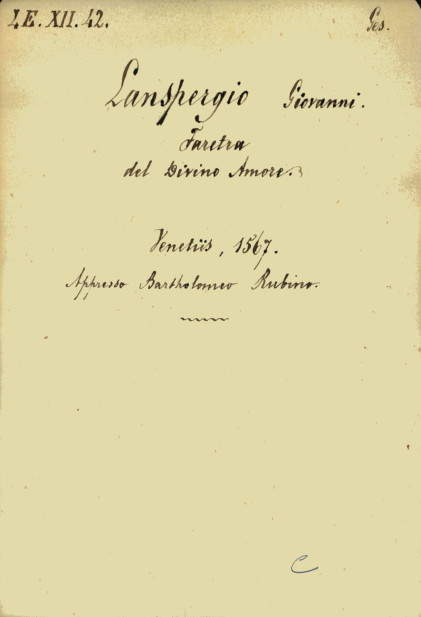 I.E.XII.42.
Ges.
Lanspergio Giovanni.
Faretra
del Divino Amore.
Venetiis, 1567.
Appresso Bartholomeo Rubino.
C